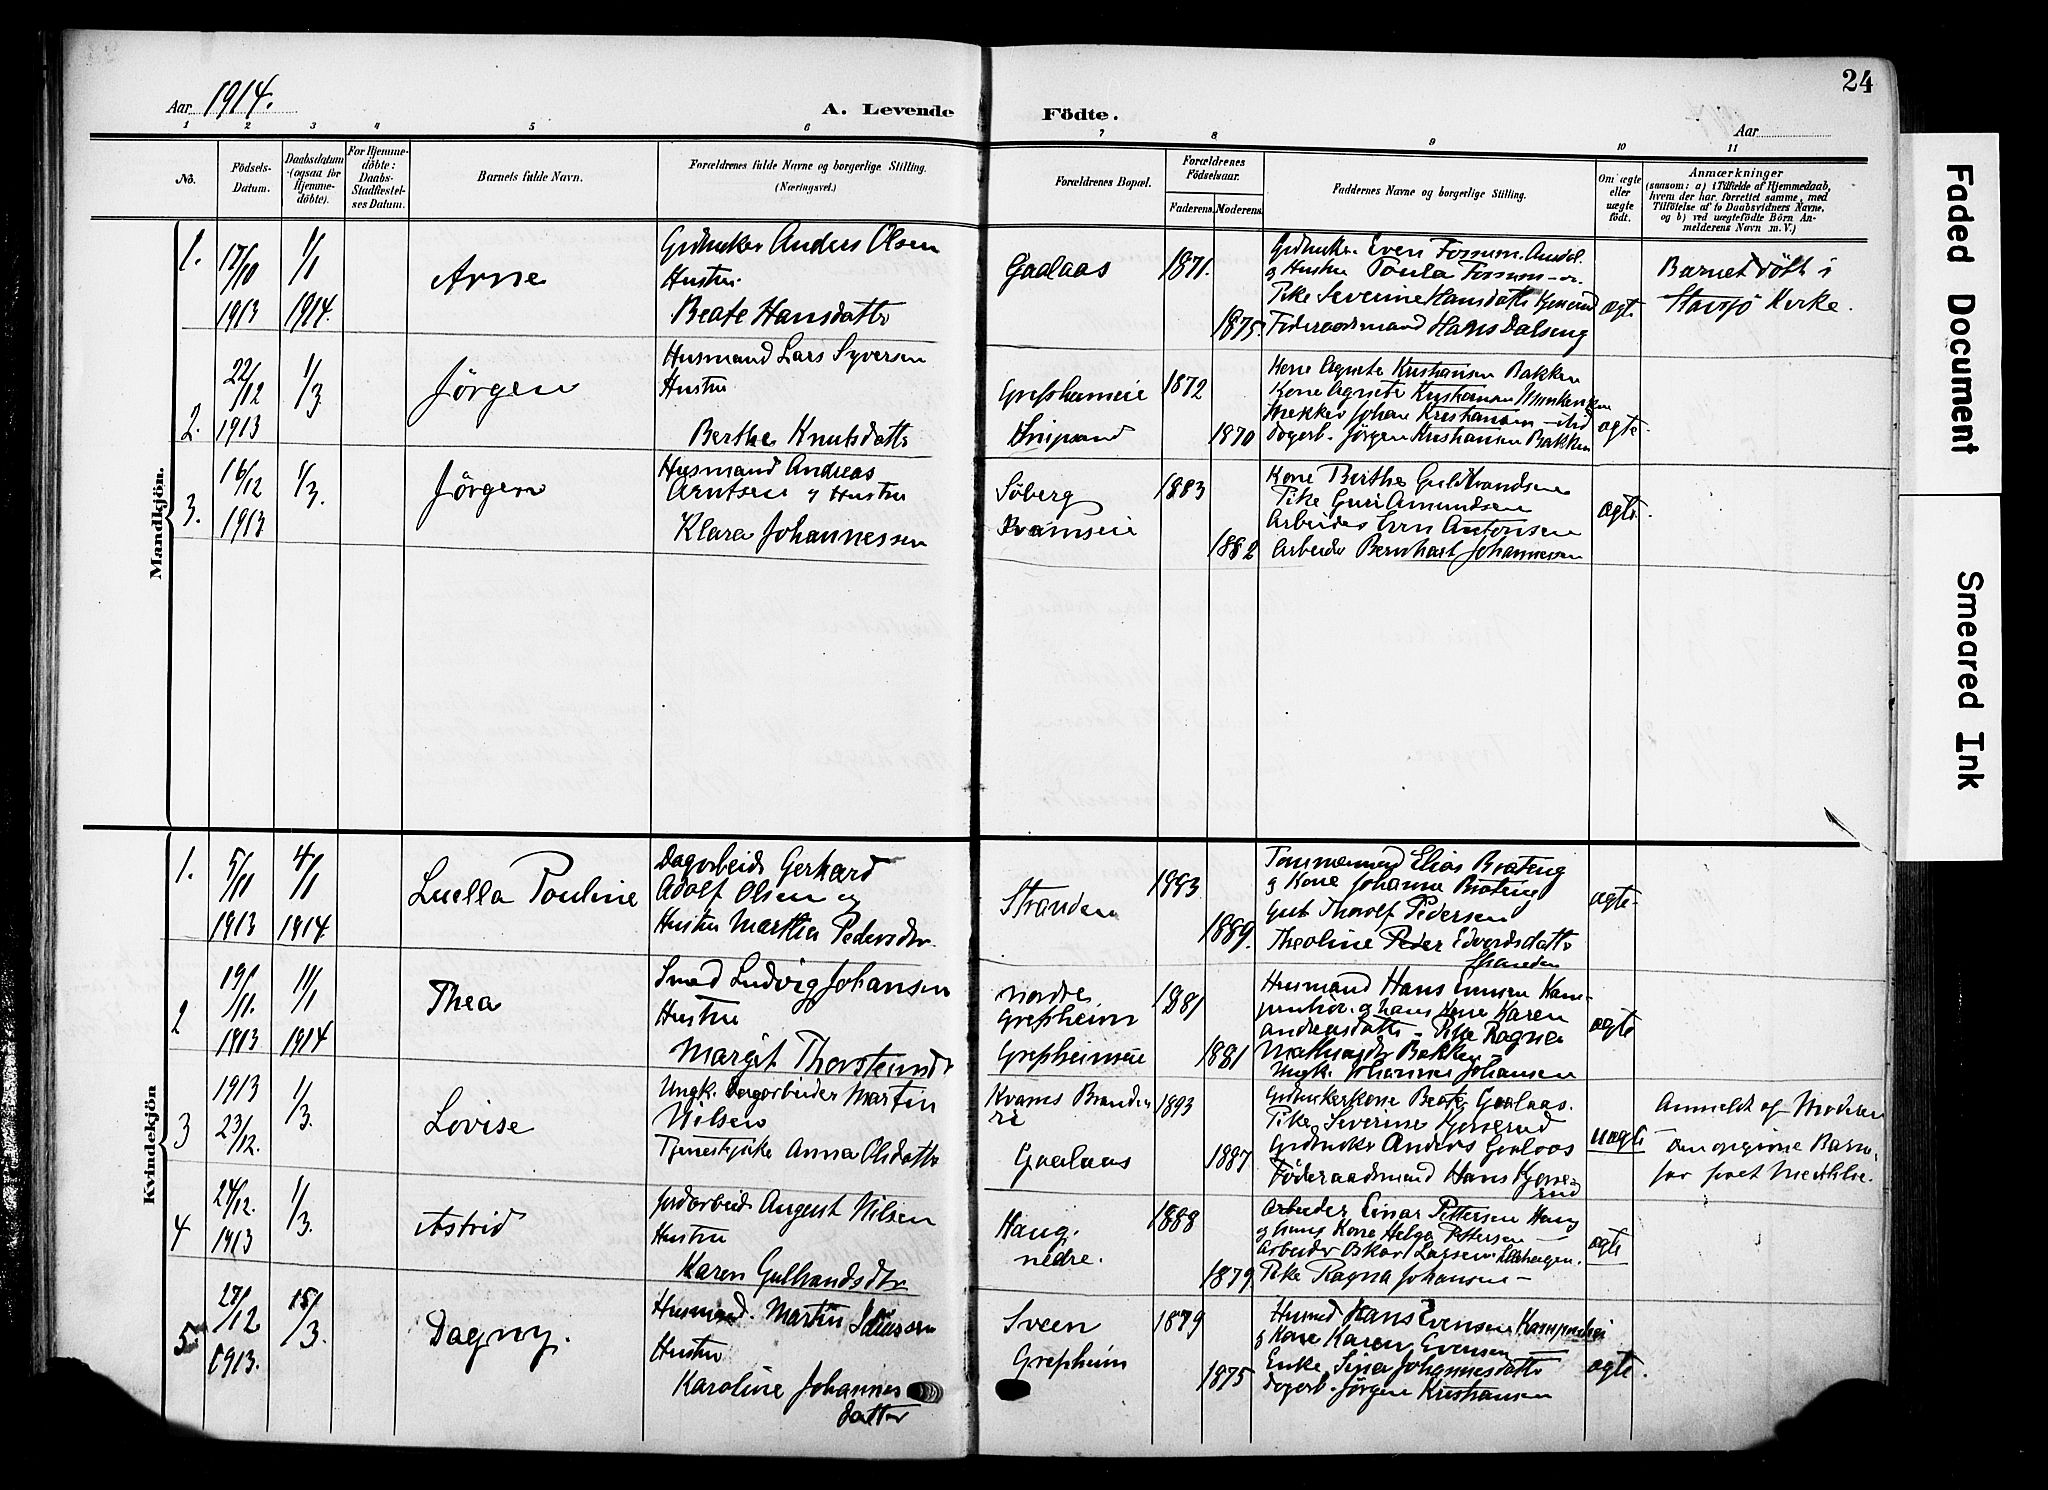 24
Aar 1914.
A. Levende Födte.
Aar
1 2 3 4 5 6 7 8 9 10 11
No.
Födsels-
Datum.
Daabsdatum
(ogsaa for
Hjemme-
döbte).
For Hjemme-
döbte:
Daabs-
Stadfæstel-
ses Datum.
Barnets fulde Navn.
Forældrenes fulde Navne og borgerlige Stilling.
(Næringsvei.)
Forældrenes Bopæl.
Forældrenes
Födselsaar.
Faderens.
Moderens.
Faddernes Navne og borgerlige Stilling.
Om ægte
eller
uægte
födt.
Anmærkninger
(saasom: a) i Tilfælde af Hjemmedaab,
hvem der har forrettet samme, med
Tilföielse af to Daabsvidners Navne,
og b) ved uægtefödte Börn An-
melderens Navn m. V.)
Mandkjön.
1.
17/10
1913
1/1
1914.
Arne
Grdbruker Anders Olsen
Hustru
Beate Hansdatter
Gaalaas
1871.
1875.
Grdbruker Even Fossum
og Hustru Fossum
Pike Severine Hansdatter Kjønerud
Føderaadsmand Hans Dalseng
ægte
Barnet døbt i
Stavsjø Kirke.
2.
22/12
1913
1/3
Jörgen
Husmand Lars Syversen
Hustru
Berthe Knutsdatter
Grefsheimeie
1872
1870
Kone Agnete Kristiansen Bakken
Kone Agnete Kristiansen
Johan Kristiansen
Dagarb. Jörgen Kristiansen Bakken
ægte
3.
16/12
1913
1/3.
Jörgen
Husmand Andreas
Arntsen og Hustru
Klara Johannessen
Söberg
Kvamseie
1883
1882
Kone Berthe Guldbrandsen
Pike Guri Amundsen
Arbeider Even Antonsen
Arbeider Bernhart Johannessen
ægte
Kvindekjön
1.
5/11
1913
4/1
1914.
Luella Pouline
Dagarbeider Gerhard
Adolf Olsen og
Hustru Martha Pedersdtr.
Stranden
1893
1889.
Tømmermand Elias Bråteng
og Kone Johanne Bråteng
Gut Thorolf Pedersen
Theoline Peder Edvardsdatter
Stranden
ægte
2
19/11.
1913
11/1
1914
Thea
Smed Ludvig Johansen
Hustru
Margit Thorsteinsdtr
Nordre
Grefsheim
Grefsheimeie
1881
1881
Husmand Hans Evensen
og hans Kone Karen
Andreasdatter - Pike Ragna
Bakken
Ungk. Johannes Johansen
ægte
3
1913
23/12.
1/3.
Lovise
Ungk. Dagarbeider Martin
Nilsen
Tjenestepike Anna Olsdatter
Kvams
Gaalaas
1893
1887
Grdbrukerkone Beate Gaalaas.
Pike Severine Kjønerud
Grdbruker Anders Gaalaas
Føderaadsmand Hans Kjøne-
rud
uægte
Anmeldt af Moderen
den opgivne Barne-
far
4
24/12.
1913
1/3.
Astrid
Jordarbeider August Nilsen
Hustru
Karen Gulbrandsdtr
Haug
nedre.
1888
1879.
Arbeider Einar Pettersen Haug
og hans Kone Helga Pettersen
Arbeider Oskar Larsen
Pike Ragna Johansen
ægte
5.
27/12
1913.
15/3.
Dagny.
Husmand. Martin
Hustru
Karoline Johannes
datter
Sveen
Grefsheim
1879
1875
Husmd Hans Evensen Kampenhei
og Kone Karen Evensen
Enke Sina Johannesdatter
Dagarb. Jörgen Kristiansen
ægte.
Faded Document
Smeared Ink